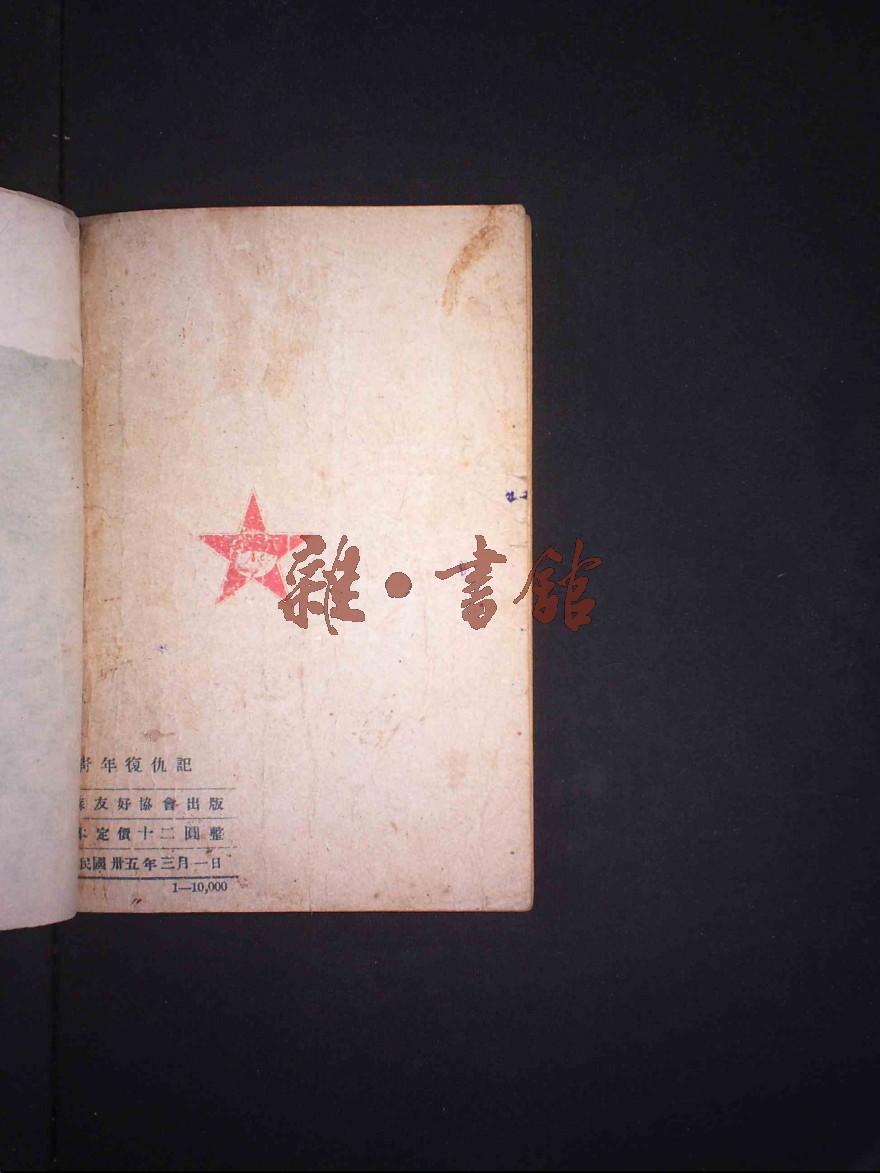 雜·書館
青年復仇記
蘇友好協會出版
本定價十二圓整
民國卅五年三月一日
1—10,000